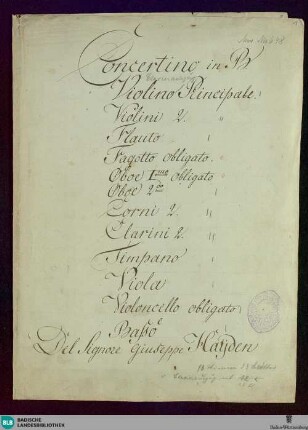 Concertino in B
Violino Principale.
Violini 2. "
Flauto "
Fagotto obligato. "
Oboe I.mo obligato "
Oboe 2.do
Corni 2. "
Clarini 2. "
Timpano "
Viola "
Violoncello obligato
e Basso
Del Signore Giuseppe Hayden
BLB BADISCHE
LANDESBIBLIOTHEK
Baden-Württemberg